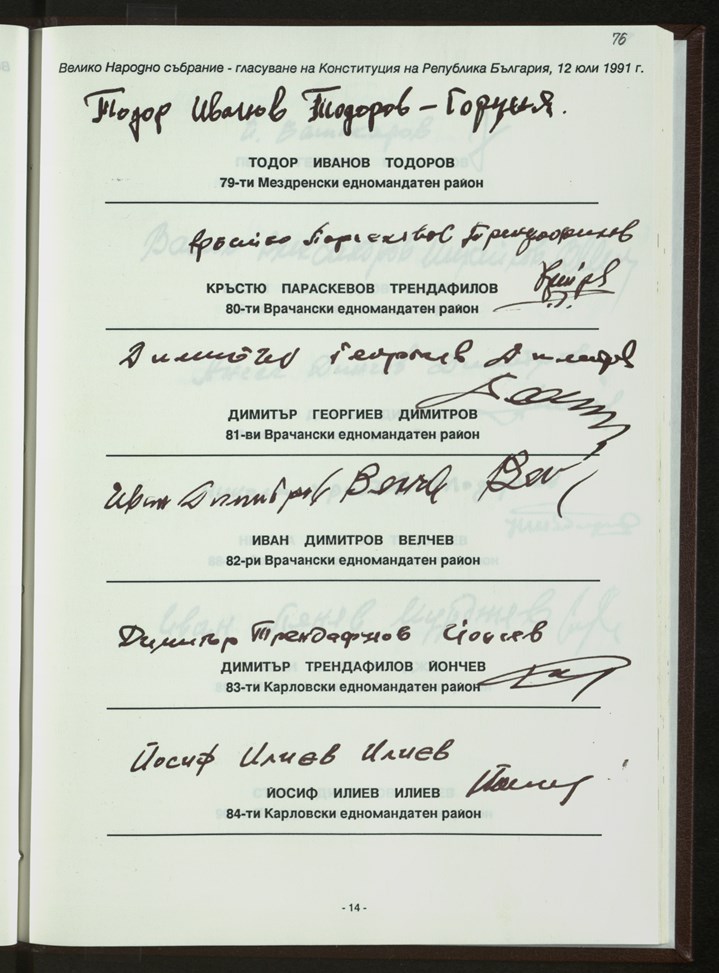 76
Велико Народно събрание - гласуване на Конституция на Република България, 12 юли 1991 г.
Тодор Иванов Тодоров - Горуня.
ТОДОР ИВАНОВ ТОДОРОВ
79-ти Мездренски едномандатен район
Кръстю Параскевов Трендафилов
КРЪСТЮ ПАРАСКЕВОВ ТРЕНДАФИЛОВ
80-ти Врачански едномандатен район
Димитър Георгиев Димитров
ДИМИТЪР ГЕОРГИЕВ ДИМИТРОВ
81-ви Врачански едномандатен район
Иван Димитров Велчев
ИВАН ДИМИТРОВ ВЕЛЧЕВ
82-ри Врачански едномандатен район
Димитър Трендафилов Йончев
ДИМИТЪР ТРЕНДАФИЛОВ ЙОНЧЕВ
83-ти Карловски едномандатен район
Йосиф Илиев Илиев
ЙОСИФ ИЛИЕВ ИЛИЕВ
84-ти Карловски едномандатен район
- 14 -